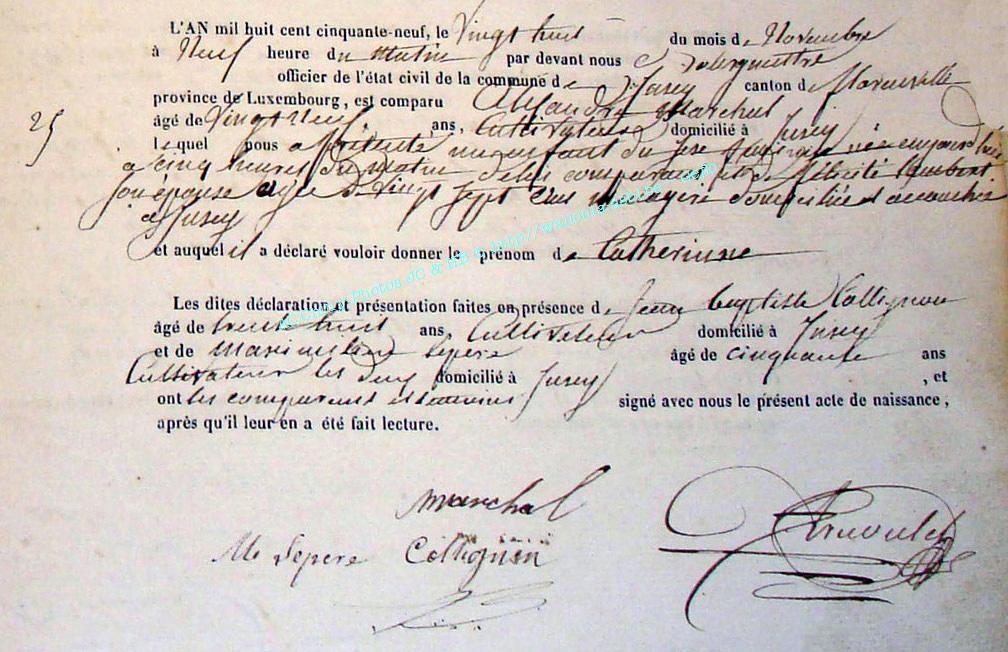 L'AN mil huit cent cinquante-neuf, le Vingt huit du mois de Novembre
à Neuf heure du Matin par devant nous
officier de l'état civil de la commune de Juserey canton de
province de Luxembourg, est comparu Alexandre Marchal
âgé de Vingt Neuf ans, Cultivateur domicilié à Jusey
25
lequel nous a présenté un enfant du sexe né aujourd'hui
a cinq heures du matin de lui comparant et de Félicité
son épouse agée de Vingt sept ans Ménagère domiciliée et accouchée
a Jusey
et auquel il a déclaré vouloir donner le prénom de Catherinne
Les dites déclaration et présentation faites en présence de Jean Baptiste Collignon
âgé de trente huit ans, Cultivateur domicilié à Jusey
et de Maximilien Lepere âgé de cinquante ans
Cultivateur les deux domicilié à Jusey , et
ont les comparant et temoins signé avec nous le présent acte de naissance,
après qu'il leur en a été fait lecture.
marchal
M Lepere Collignon